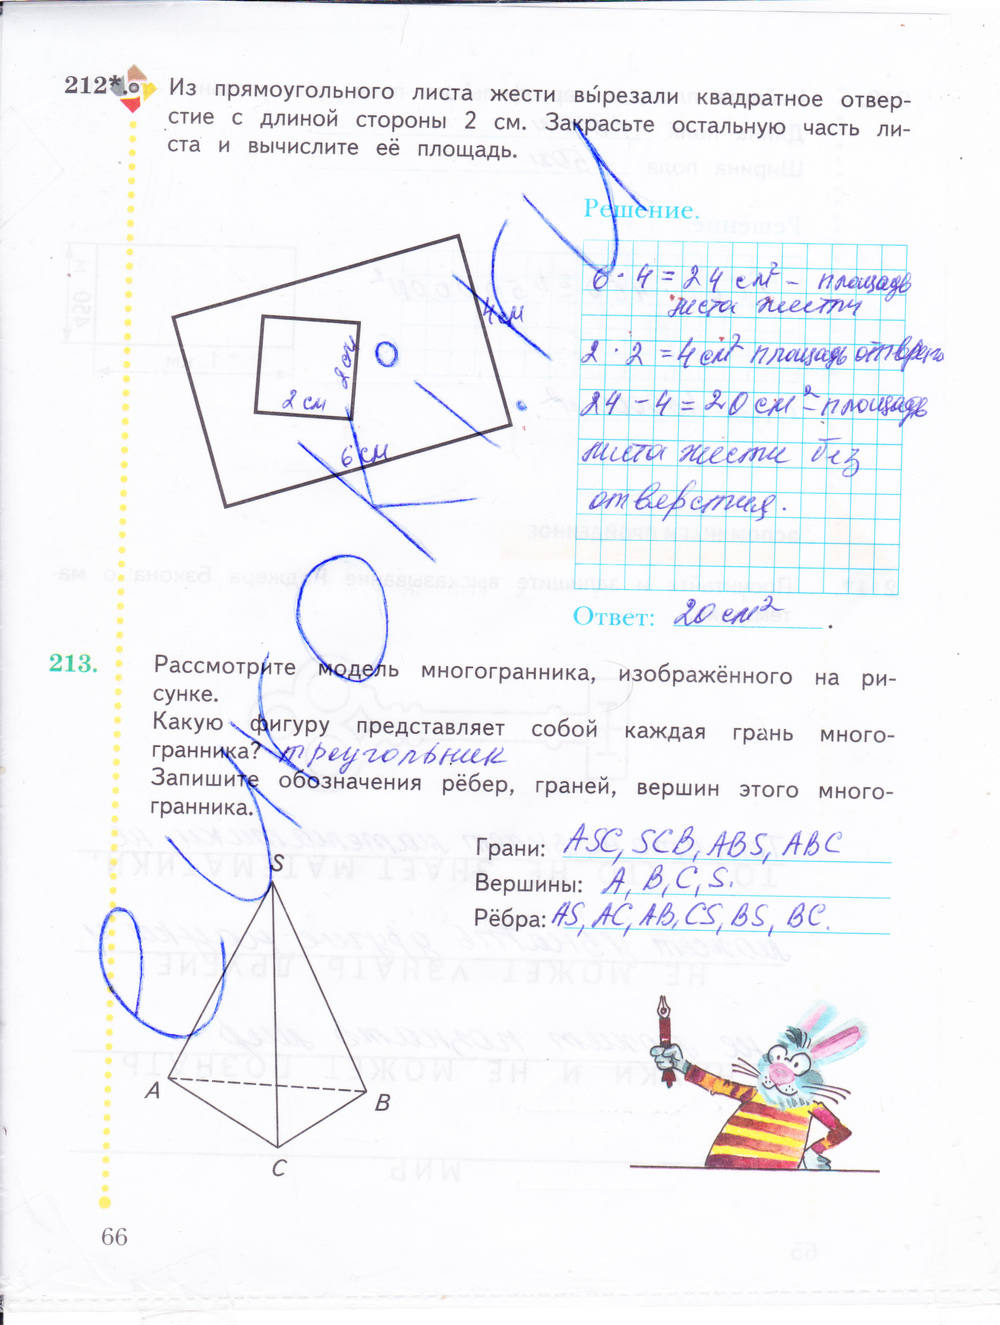 212*.
Из прямоугольного листа жести вырезали квадратное отвер-
стие с длиной стороны 2 см. Закрасьте остальную часть ли-
ста и вычислите её площадь.
Решение.
6 · 4 = 24 см² - площадь
листа жести
2 · 2 = 4 см² площадь
24 - 4 = 20 см² - площадь
листа жести без
отверстия.
4 см
2 см
2 см
6 см
Ответ: 20 см².
213.
Рассмотрите модель многогранника, изображённого на ри-
сунке.
Какую фигуру представляет собой каждая грань много-
гранника? треугольник
Запишите обозначения рёбер, граней, вершин этого много-
гранника.
Грани: ASC, SCB, ABS, ABC
Вершины: A, B, C, S.
Рёбра: AS, AC, AB, CS, BS, BC.
S
A
B
C
66